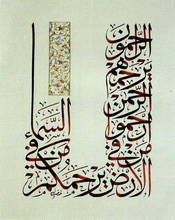 الراحمون
يرحمهم
الرحمن
ارحموا
من في
الأرض يرحمكم
من في
السماء